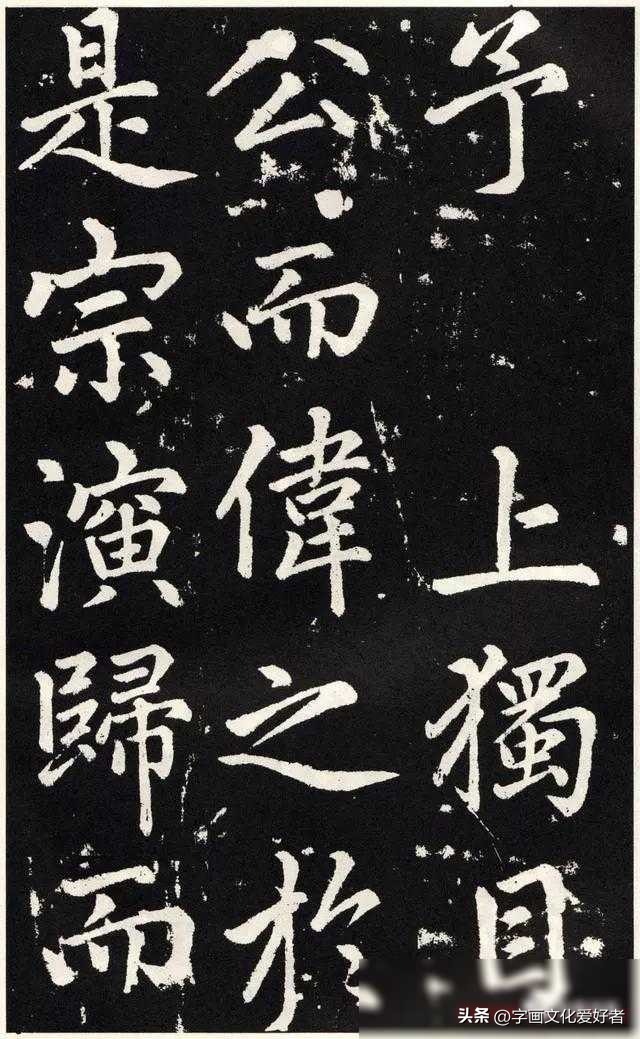 予 上獨目
公而偉之於
是宗演歸而
头条 @字画文化爱好者